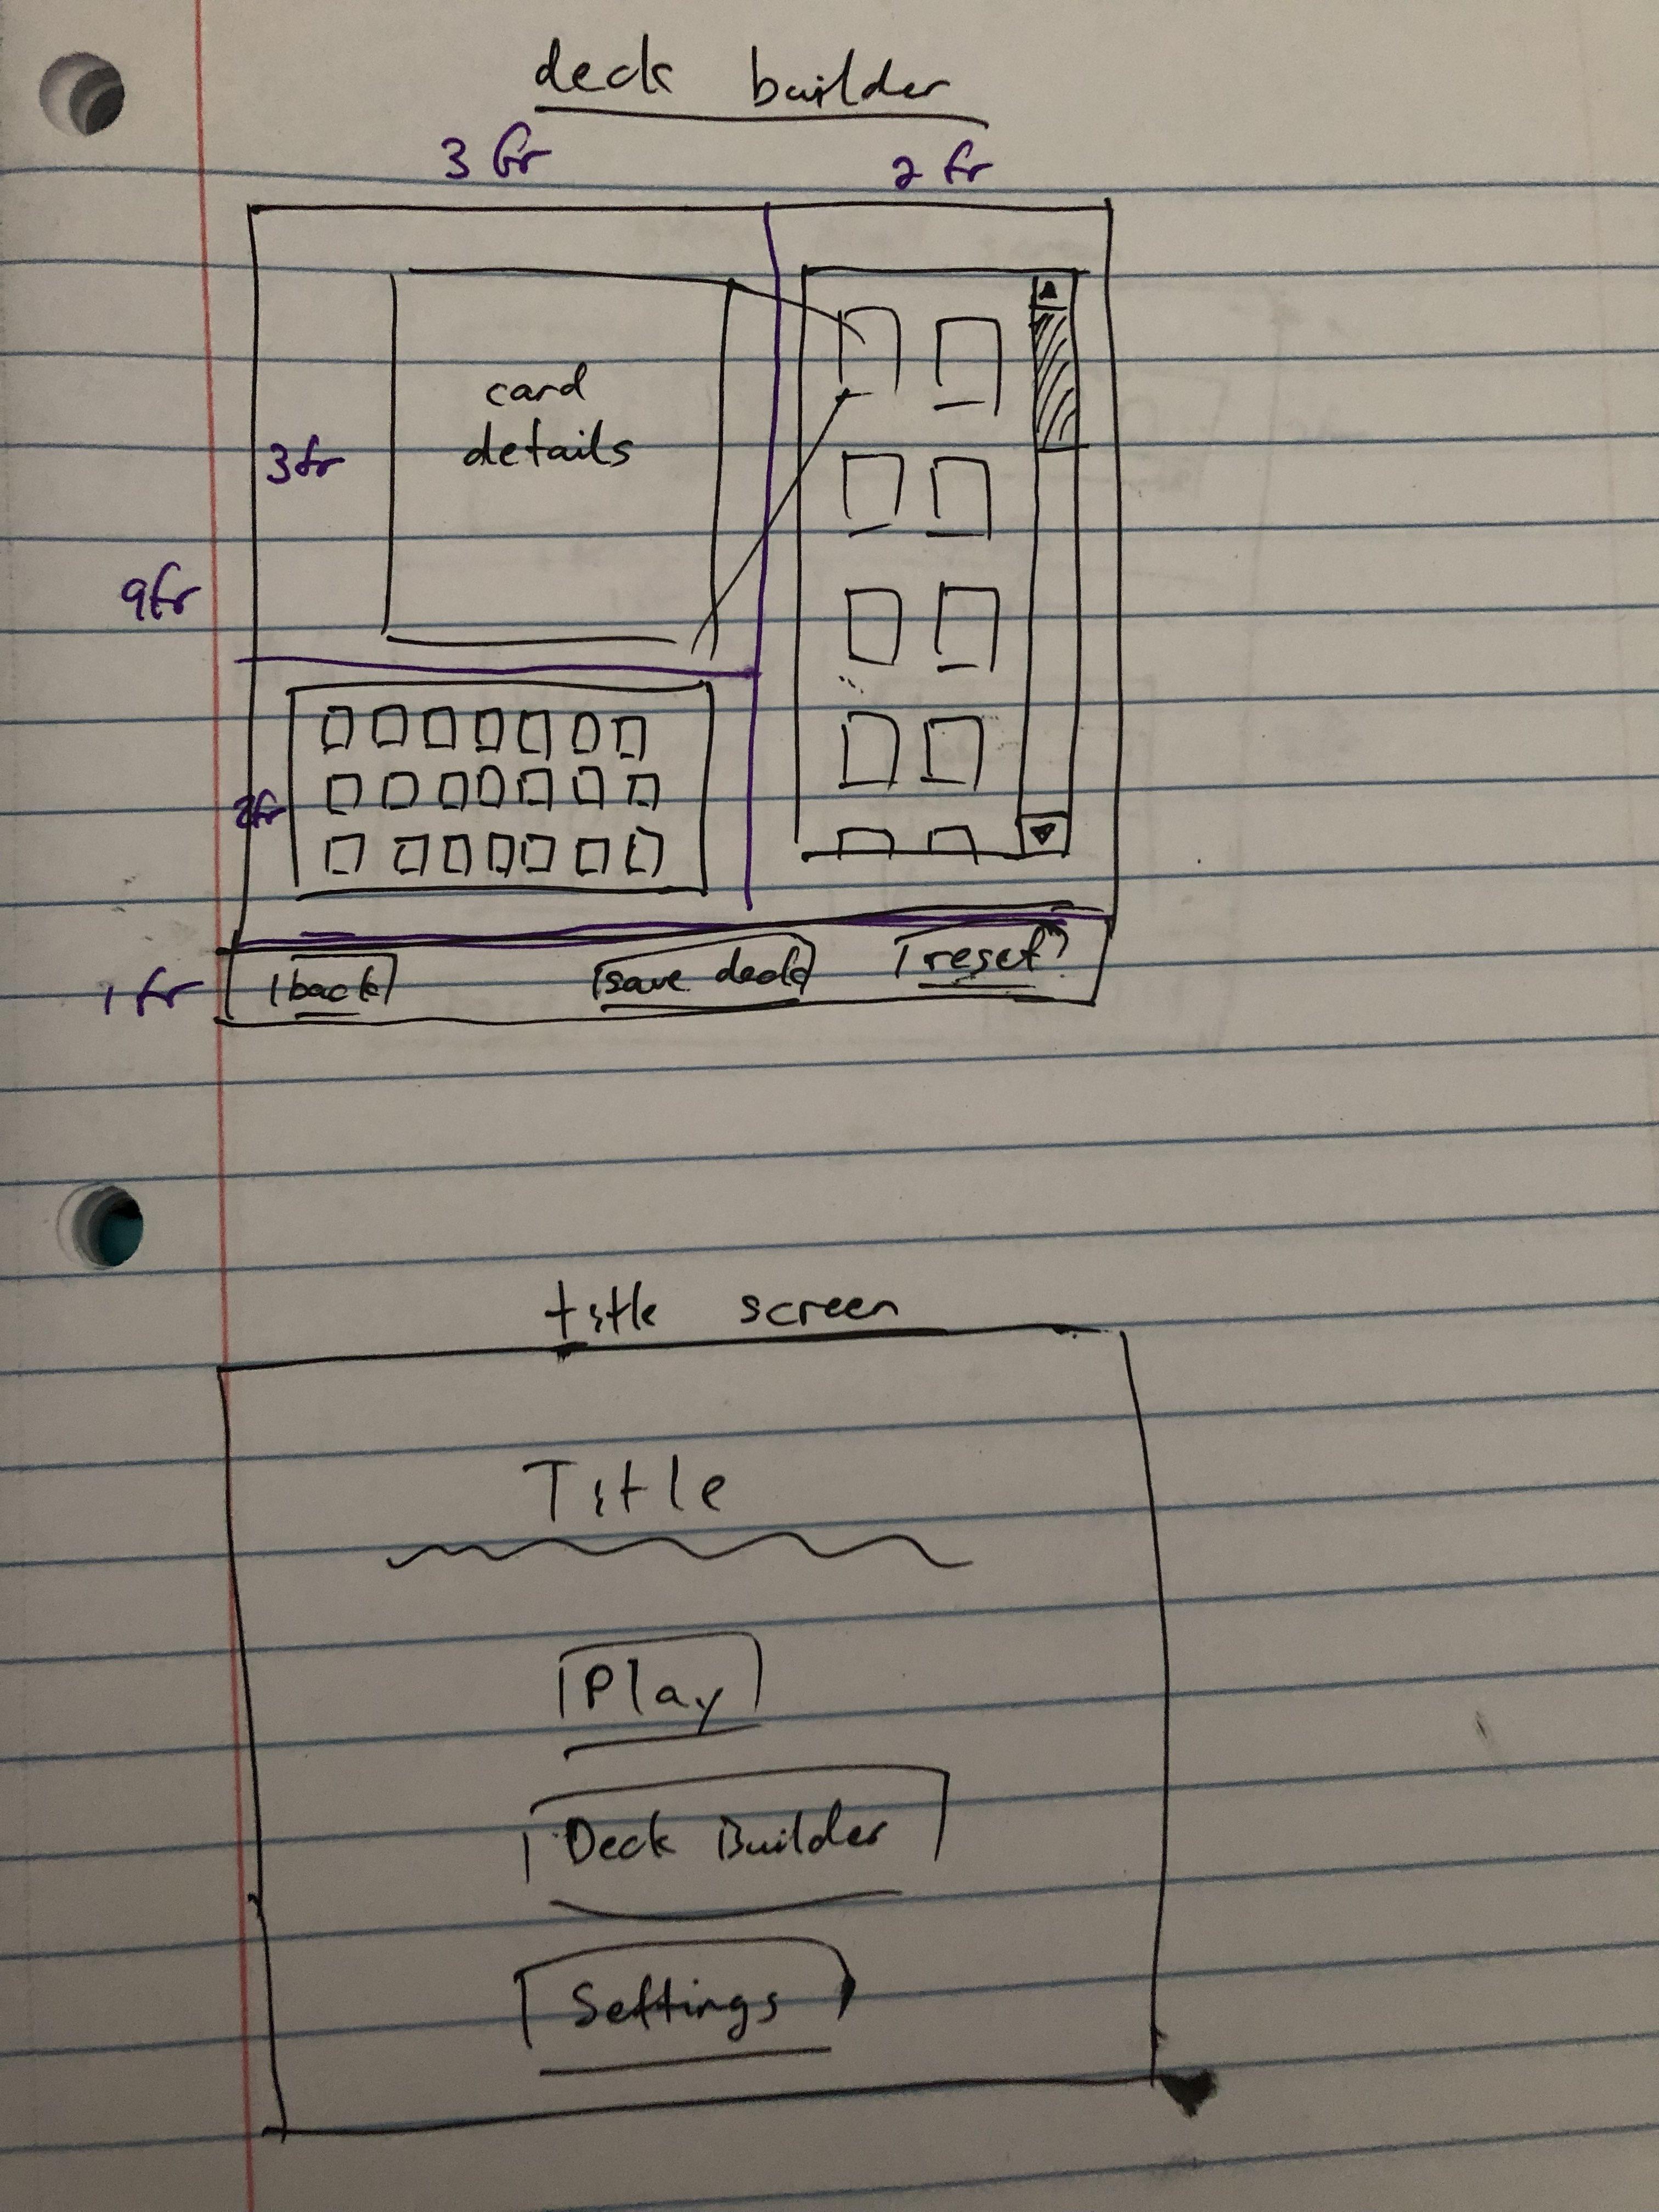 deck builder
3 fr 2 fr
card
details
3fr
9fr
2fr
1 fr
back save deck reset
title screen
Title
Play
Deck Builder
Settings